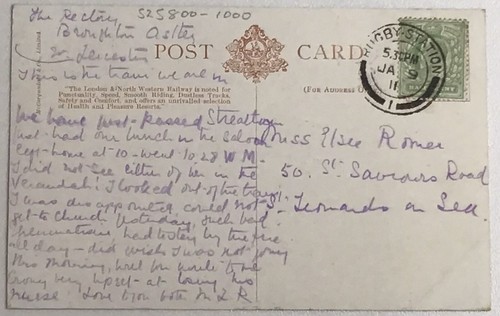 The Rectory S25800-1000
Broughton Astley
Leicester
POST CARD
This is the train we are in
"The London & North Western Railway is noted for
Punctuality, Speed, Smooth Riding, Dustless Tracks,
Safety and Comfort, and offers an unrivalled selection
of Health and Pleasure Resorts."
(For Address O
RUGBY STATION
5.30PM
JA 9
11
1
We have just passed
had our lunch in the saloon
left home at 10 - went 10.28
I did not see either of her in the
Verandah! I looked out of the train
I was disappointed could not
get to Church yesterday, such bad
had to stay by the fire
all day - did wish I was not going
this morning, will you write to me
very upset - at losing his
nurse Love to you both M L R
Miss Elsie Romer
50. St. Saviours Road
St. Leonards on Sea.